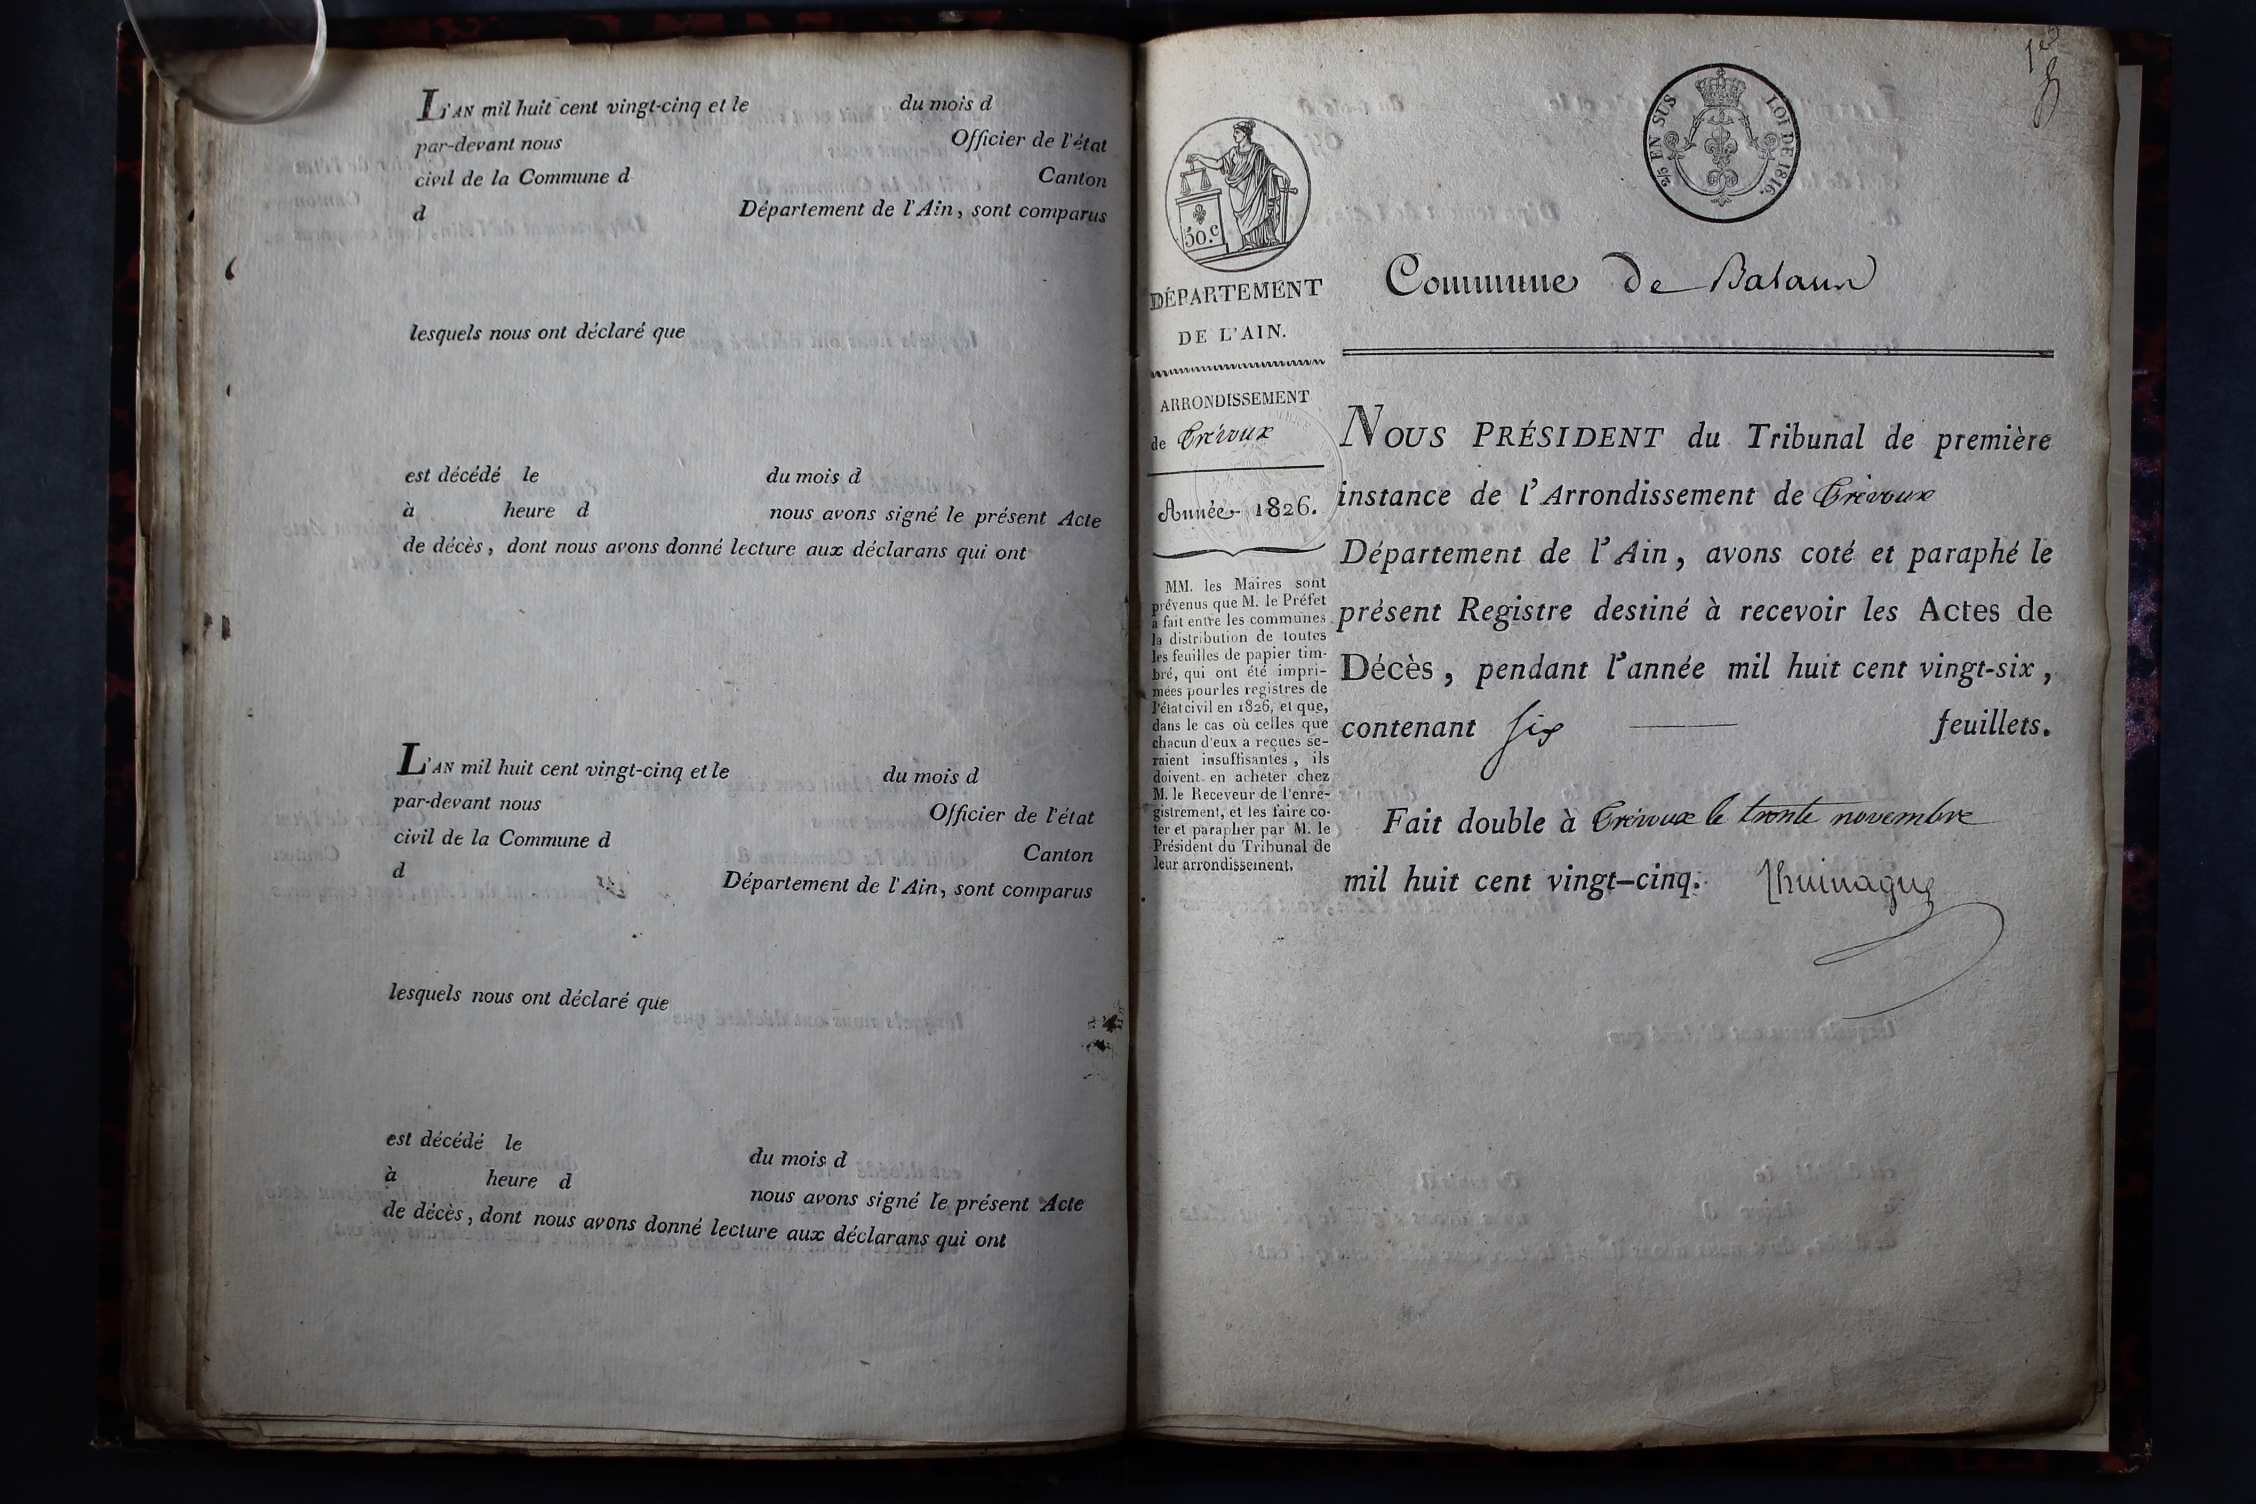 L'AN mil huit cent vingt-cinq et le du mois d
par-devant nous Officier de l'état
civil de la Commune d Canton
d Département de l'Ain, sont comparus
lesquels nous ont déclaré que
est décédé le du mois d
à heure d nous avons signé le présent Acte
de décès, dont nous avons donné lecture aux déclarans qui ont
L'AN mil huit cent vingt-cinq et le du mois d
par-devant nous Officier de l'état
civil de la Commune d Canton
d Département de l'Ain, sont comparus
lesquels nous ont déclaré que
est décédé le du mois d
à heure d nous avons signé le présent Acte
de décès, dont nous avons donné lecture aux déclarans qui ont
50.c
DÉPARTEMENT
DE L'AIN.
ARRONDISSEMENT
de Trévoux
Année 1826.
MM. les Maires sont
prévenus que M. le Préfet
a fait entre les communes
la distribution de toutes
les feuilles de papier tim-
bré, qui ont été impri-
mées pour les registres de
l'état civil en 1826, et que,
dans le cas où celles que
chacun d'eux a reçues se-
raient insuffisantes, ils
doivent en acheter chez
M. le Receveur de l'enre-
gistrement, et les faire co-
ter et parapher par M. le
Président du Tribunal de
leur arrondissement.
EN SUS LOI DE 1816.
Commune de Balaun
NOUS PRÉSIDENT du Tribunal de première
instance de l'Arrondissement de Trévoux
Département de l'Ain, avons coté et paraphé le
présent Registre destiné à recevoir les Actes de
Décès, pendant l'année mil huit cent vingt-six,
contenant six feuillets.
Fait double à Trévoux le trente novembre
mil huit cent vingt-cinq.